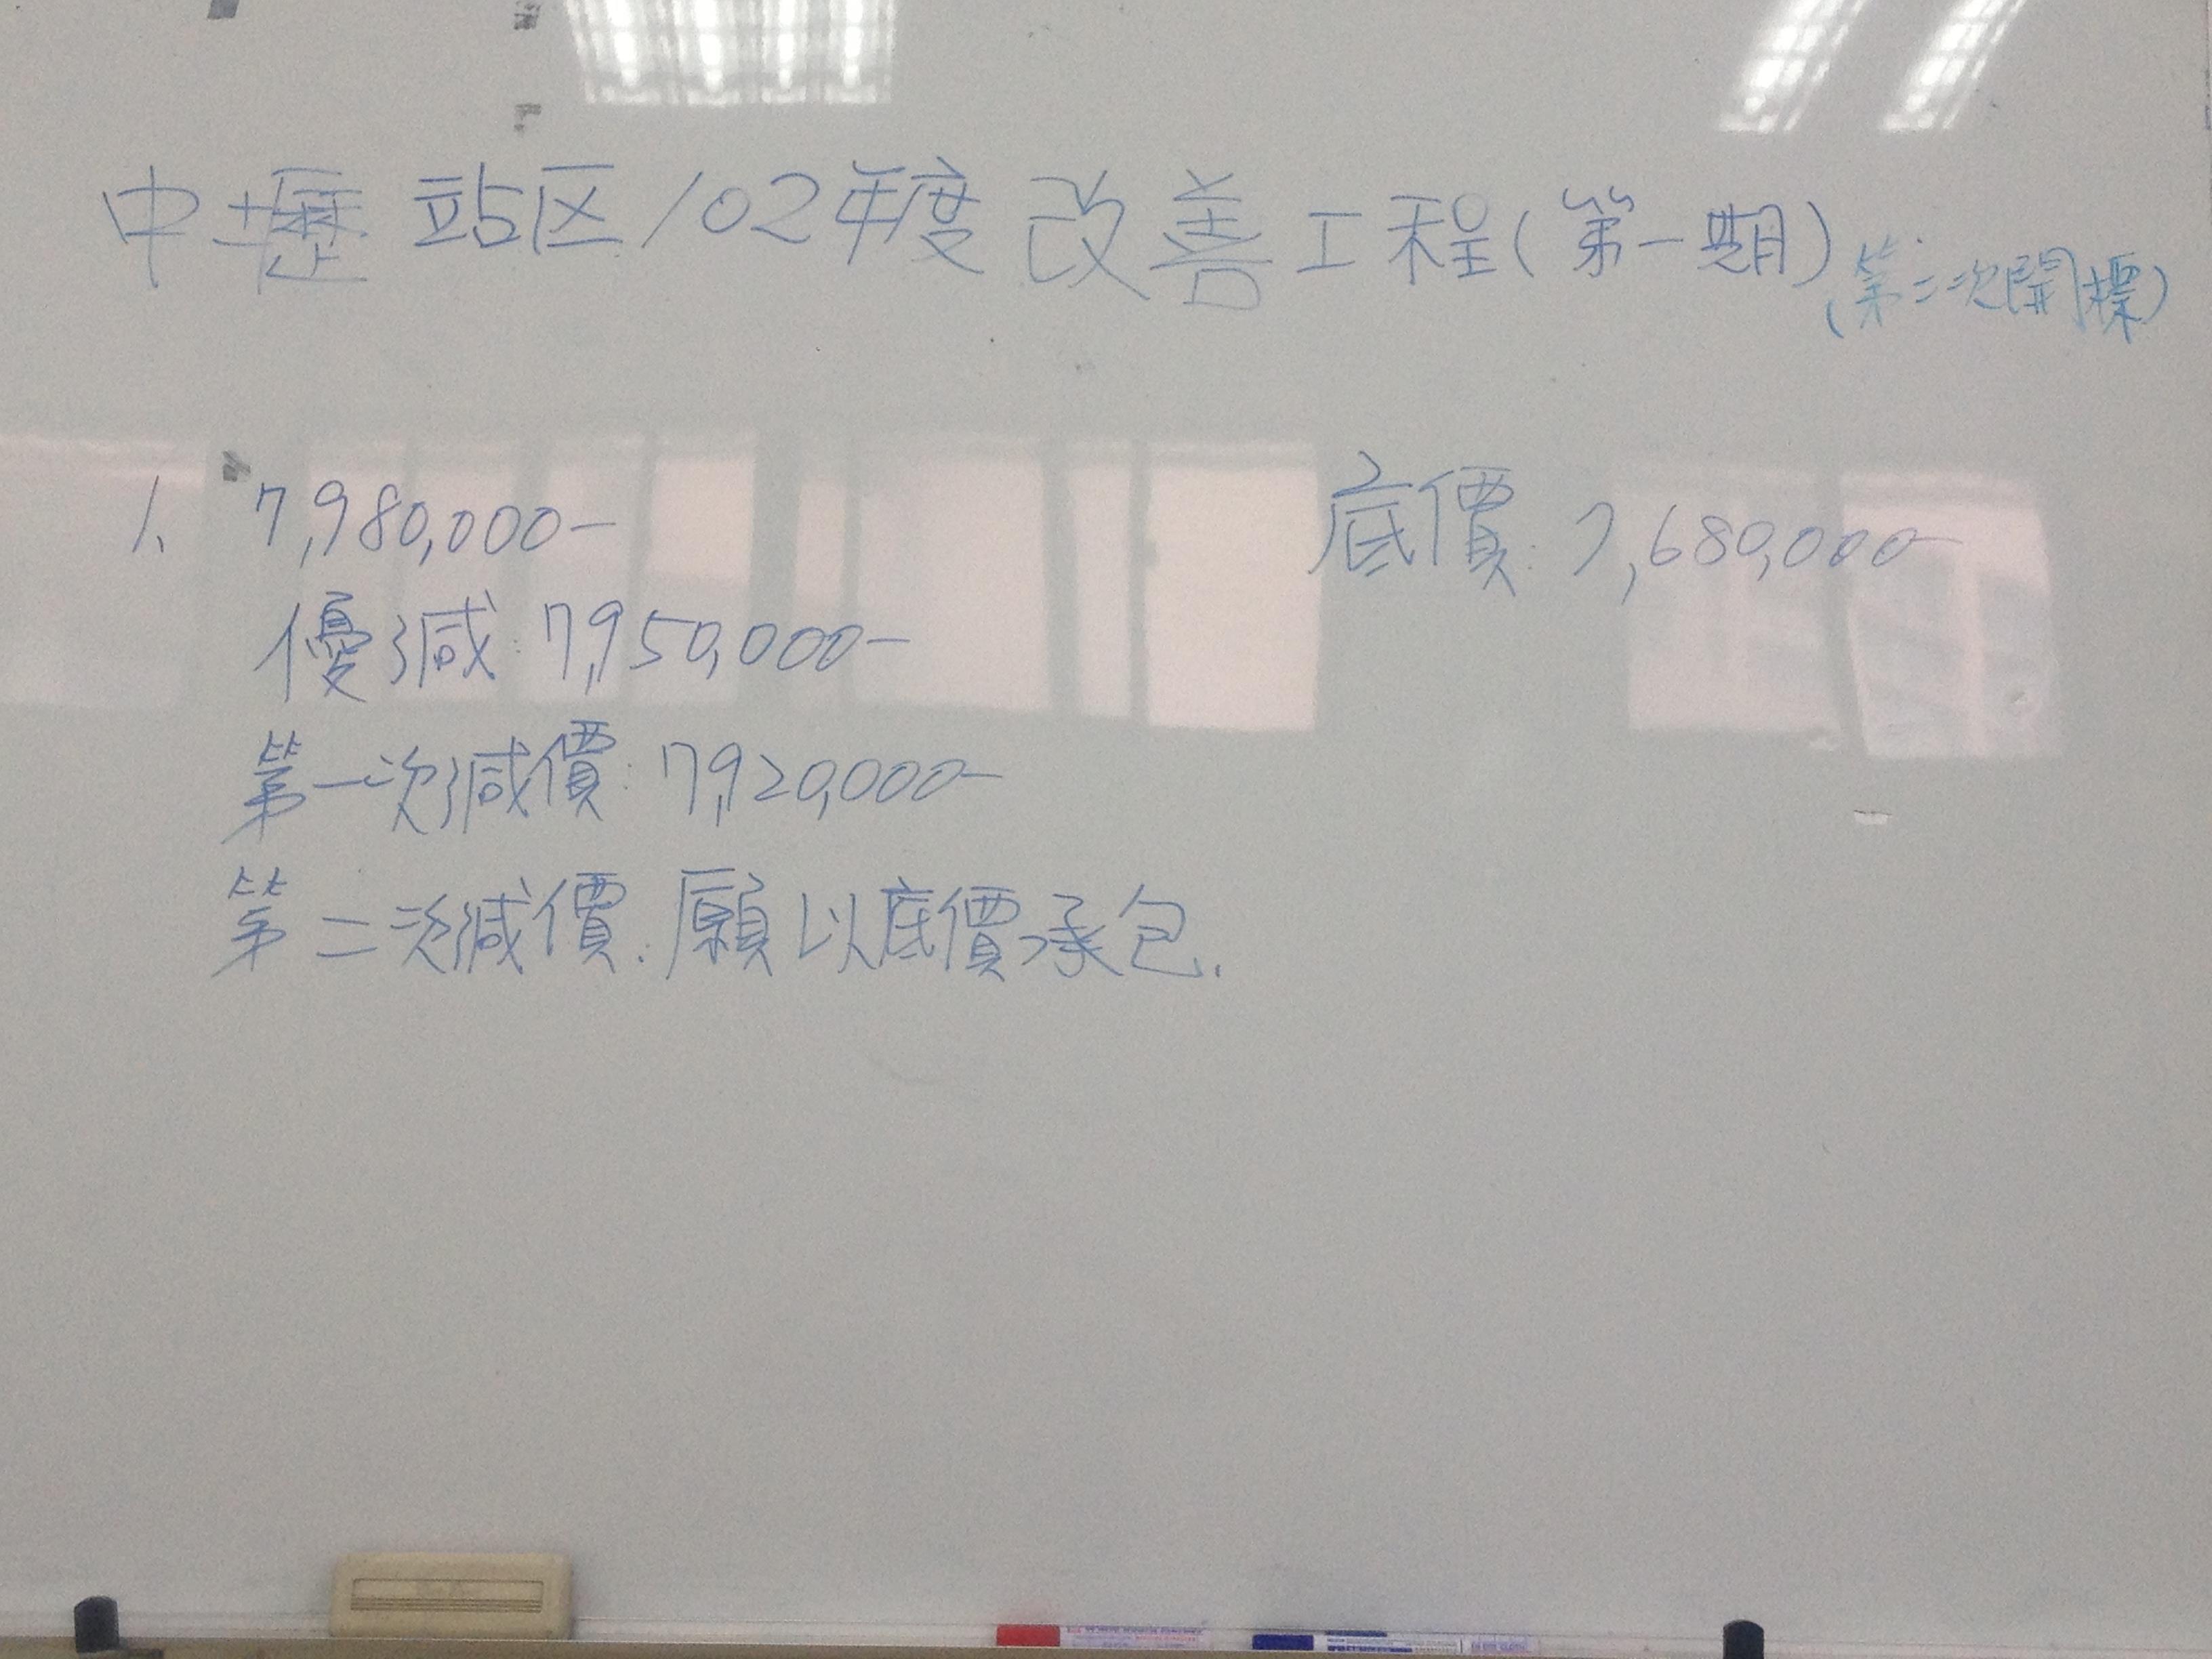 中壢站区102年度改善工程(第一期)(第二次開標)
1、 7,980,000-
底價:7,680,000-
優減:7,950,000-
第一次減價:7,920,000-
第二次減價:願以底價承包.